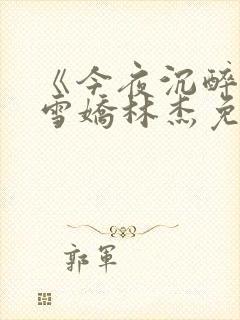 《今夜沉醉
雪嬌林杰免
郭軍